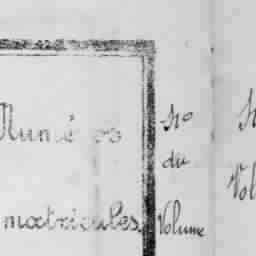 Numéros
matricules
No
du
Volume